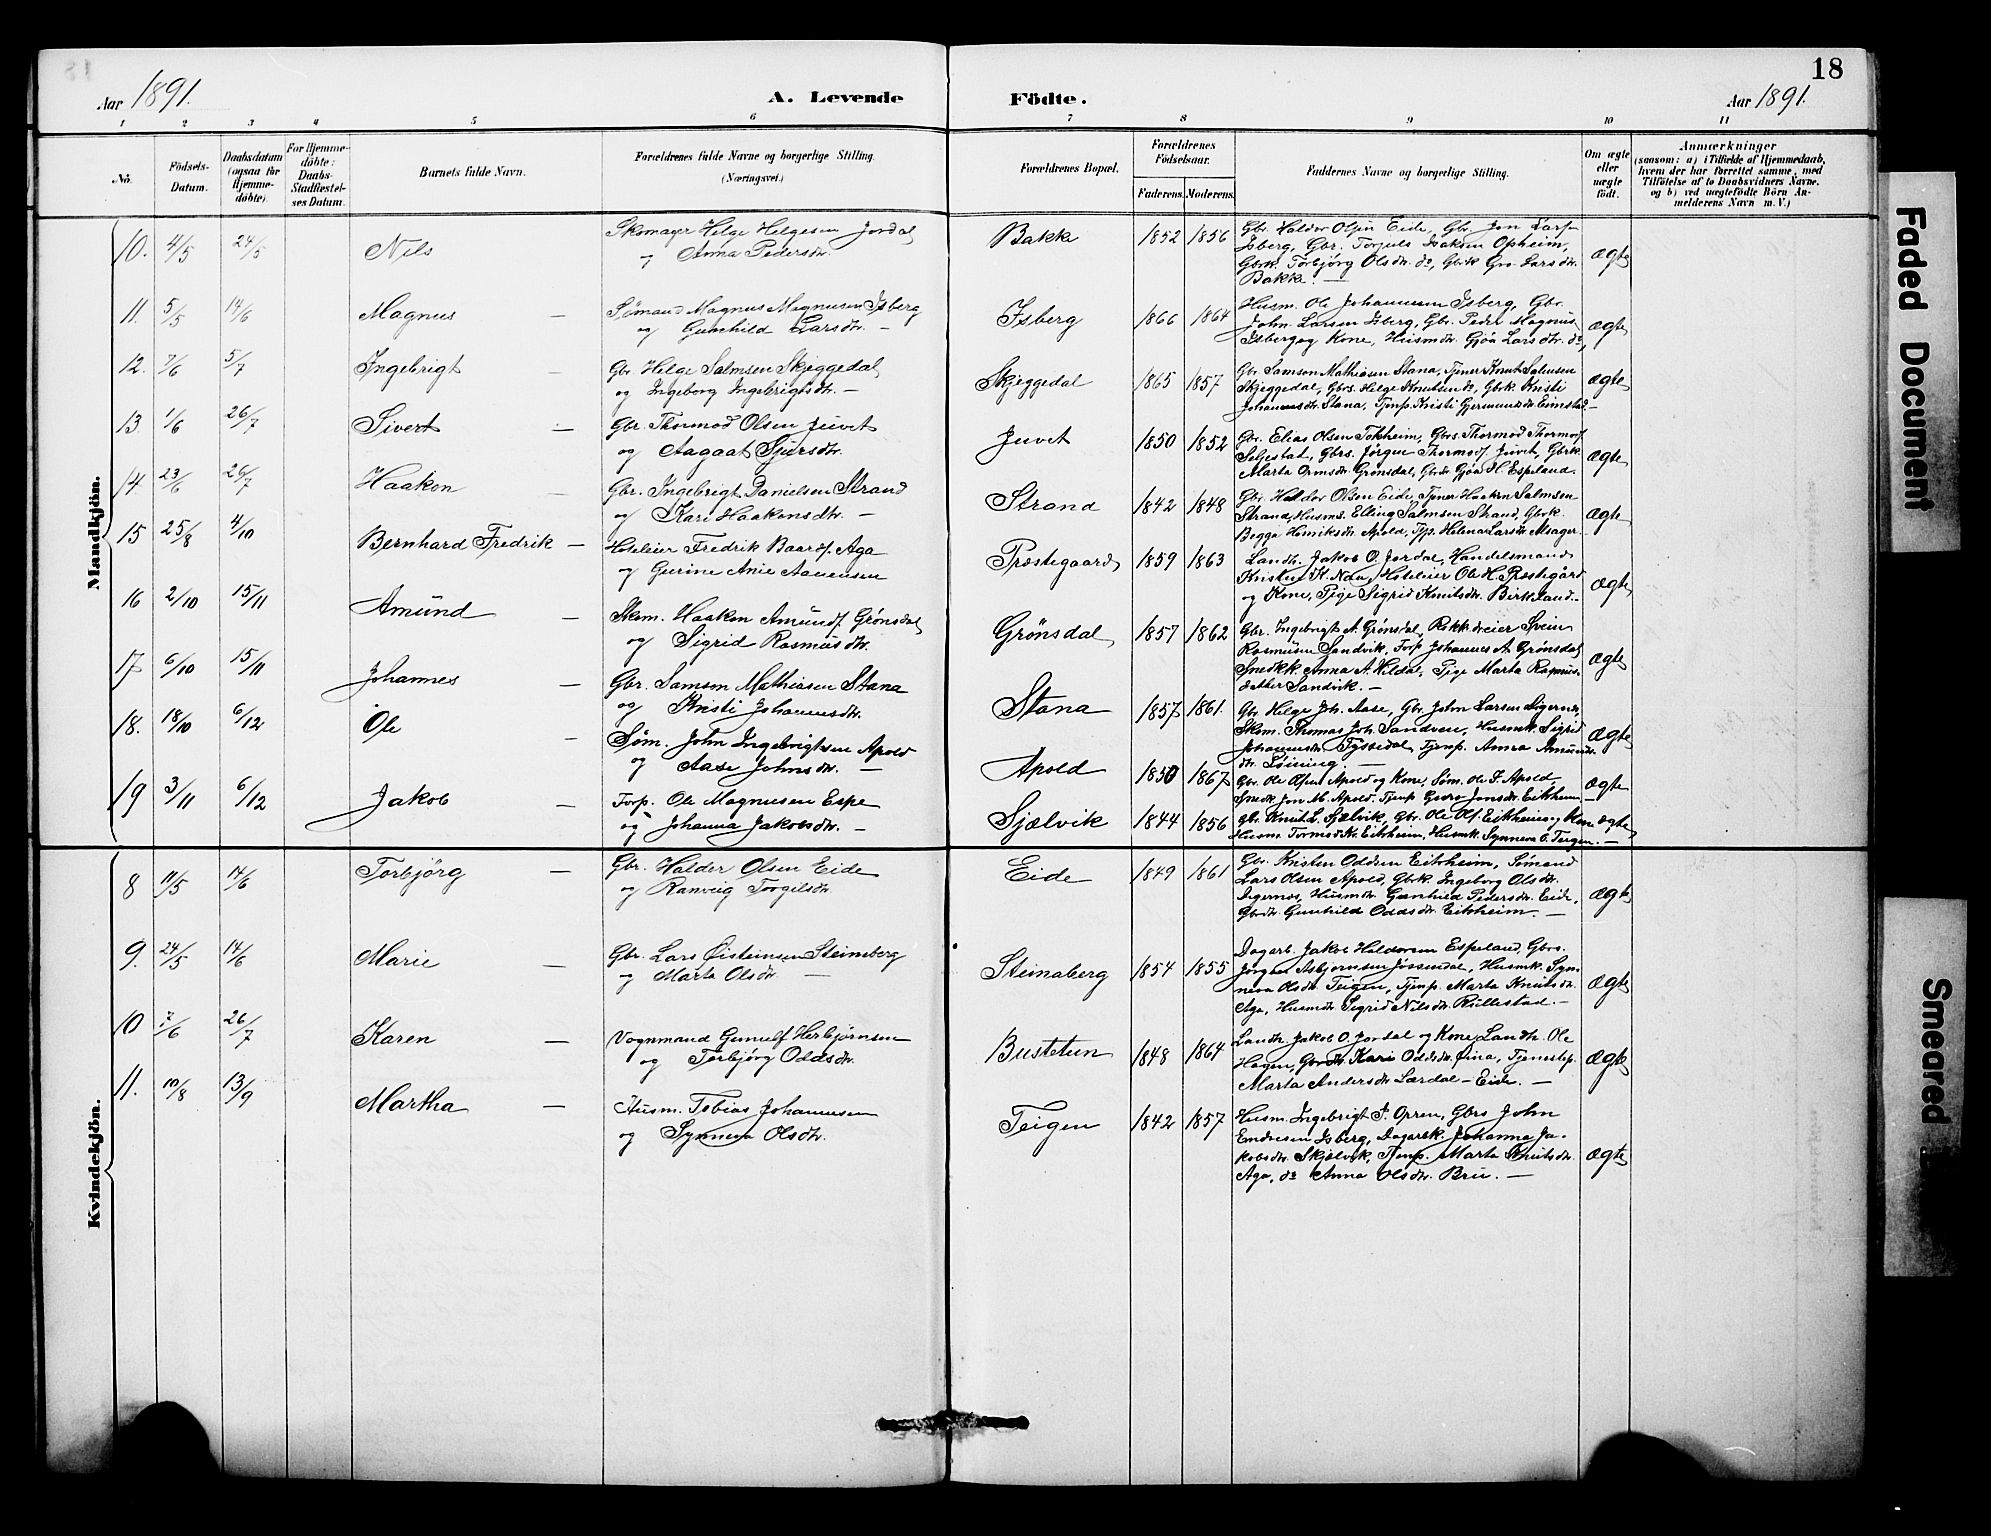 18
Aar 1891.
A. Levende
Födte.
Aar 1891.
1 2 3 4 5 6 7 8 9 10 11
No.
Födsels-
Datum.
Daabsdatum
(ogsaa for
Hjemme-
døbte).
For Hjemme-
døbte:
Daabs-
Stadfæstel-
ses Datum.
Barnets fulde Navn.
Forældrenes fulde Navne og borgerlige Stilling.
(Næringsvei.)
Forældrenes Bopæl.
Forældrenes
Födselsaar.
Faderens. Moderens.
Faddernes Navne og borgerlige Stilling.
Om ægte
eller
uægte
födt.
Anmærkninger
(saasom: a) i Tilfælde af Hjemmedaab,
hvem der har forrettet samme, med
Tilföielse af to Daabsvidners Navne.
og b) ved uægtefödte Börn An-
melderens Navn m. V.)
Mandkjön.
10. 4/5 24/5 Nils
Skomager Helge Helgesen Jordal
og Anna Pedersdtr.
Bakke 1852 1856
Gbr. Haldor Olsen Eide, Gbr. Jon Lars-
Isberg, Gbr. Torjuls Isaksen Opheim,
Gbrk. Torbjörg Olsdtr. do, Gbrk Gro Larsdtr.
Bakke. —
ægte
11. 5/5 14/6 Magnus —
Sømand Magnus Magnusen Isberg
og Gunhild Larsdtr. —
Isberg 1866 1864
Husm. Ole Johannesen Isberg, Gbr.
John Larsen Isberg, Gbr. Peder Magnus-
Isberg og Kone, Husmdtr. Gjøa Larsdtr. do,
ægte
12. 7/6 5/7 Ingebrigt —
Gbr. Helge Salmsen Skjeggedal
og Ingeborg Ingebrigtsdtr. —
Skjeggedal 1865 1857
Gbr Samson Mathiasen Stana, Tjener Knut Salmsen
Skjeggedal, Gbrs. Helge Knutsen do, Gbrk Kristi
Johannesdtr. Stana, Tjenp. Kristi Gjermundsdtr Eimstad. —
ægte
13. 1/6 26/7 Sivert —
Gbr. Thormod Olsen Juvet
og Aagaat Sjursdtr.
Juvet 1850 1852
Gbr. Elias Olsen Tokheim, Gbrs. Thormod Thormods
Seljestad, Gbrs. Jörgen Thormods Juvet, Gbrk.
Marta Ormsdtr. Grønsdal, Gbrdtr Gjøa H. Espeland.
ægte
14. 23/6 26/7 Haakon —
Gbr. Ingebrigt Danielsen Strand
og Kari Haakonsdtr. —
Strand 1842 1848
Gbr. Haldor Olsen Eide, Tjener Haaken Salmsen
Strand, Husms. Elling Salmsen Strand, Gbrk.
Begga Henriksdtr. Apold, Tjp. Helena Larsdtr. Alsager.
ægte
15 25/8 4/10 Bernhard Fredrik —
Hoteleier Fredrik Baards. Aga
og Gurine Anie Aanensen
Præstegaard 1859 1863
Landh. Jakob O. Jordal, Handelsmand
Kristen K. Nau, Hoteleier Ole H. Præstegård
og Kone, Pige Sigrid Knutsdtr. Birkeland.
ægte
16 2/10 15/11 Amund —
Skom. Haakon Amunds. Grønsdal
og Sigrid Rasmusdtr.
Grönsdal 1857 1862
Gbr. Ingebrigt A. Grønsdal, Rokkdreier Svein
Rasmusen Sandvik, Forp Johannes A Grønsdal
Snedkk. Anna A. Hildal, Pige Marta Rasmus-
datter Sandvik. —
ægte
17 6/10 15/11 Johannes —
Gbr. Samson Mathiasen Stana
og Kristi Johannesdtr.
Stana 1857 1861.
Gbr. Helge Joh. Aase, Gbr. John Larsen Digernes,
Skom. Thomas Joh. Sandven, Husmk. Sigrid
Johannesdtr Tyssedal, Tjenp. Anna Amunds-
dtr. Löining. —
ægte
18. 18/10 6/12 Ole —
Søm. John Ingebrigtsen Apold
og Aase Johnsdtr. —
Apold 1850 1867
Gbr. Ole Olsen Apold og Kone, Søm. Ole J. Apold
Snedk Jon M. Apold, Tjenp Guro Jonsdtr. Eitrheim —
ægte
19 3/11 6/12 Jakob —
Forp. Ole Magnusen Espe
og Johanna Jakobsdtr. —
Sjælvik 1844 1856
Gbr. Knut L. Sjælvik, Gbr. Ole Ols. Eitrheim og Kone
Husm. Tormod Kr. Eitrheim, Husmk. Synneva O. Teigen. —
ægte
Kvindekjön.
8 11/5 14/6 Torbjörg —
Gbr. Haldor Olsen Eide
og Ranveig Torgilsdtr.
Eide 1849 1861
Gbr. Kristen Oddsen Eitrheim, Sømand
Lars Olsen Apold, Gbrk. Ingeborg Olsdtr.
Digernes, Husmdtr. Gunhild Pedersdtr. Eide,
Gbrdtr. Gunhild Oddsdtr. Eitrheim. —
ægte
9. 24/5 14/6 Marie —
Gbr. Lars Øisteinsen Steinaberg
og Marta Olsdtr. —
Steinaberg 1854 1855
Dagarb. Jakob Haldorsen Espeland, Gbrs.
Jörgen Asbjørnsen Jøssendal, Husmk. Syn-
neva Olsdtr. Teigen, Tjenp. Marta Knutsdtr.
Aga, Husmdtr. Sigrid Nilsdtr. Rullestad. —
ægte
10 7/6 26/7 Karen —
Vognmand Gunulf Herbjørnsen
og Torbjørg Oddsdtr.
Bustetun 1848 1864
Landh. Jakob O. Jordal og Kone, Landh. Ole
Hagen, Gbrdtr. Kari Oddsdtr. Øina, Tjenestep.
Marta Andersdtr. Lærdal – Eide. —
ægte
11. 10/8 13/9 Martha —
Husm. Tobias Johannesen
og Synneva Olsdtr.
Teigen 1842 1857
Husm. Ingebrigt J. Opren, Gbrs John
Endresen Isberg, Dagarbk. Johanna Ja-
kobsdtr. Skjelvik, Tjenp. Marta Knutsdtr.
Aga, do Anna Olsdtr. Bru. —
ægte
Faded Document
Smeared